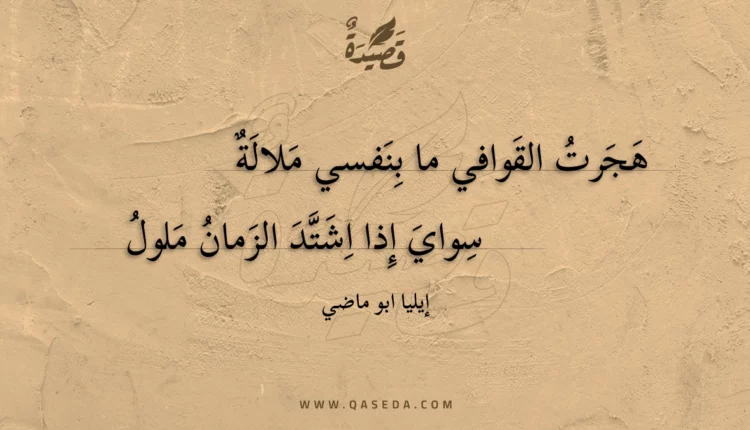 قَصِيدَةٌ
هَجَرتُ القَوافي ما بِنَفسي مَلالَةٌ
سِوايَ إِذا اِشَتَّدَ الزَمانُ مَلولُ
إيليا ابو ماضي
WWW.QASEDA.COM